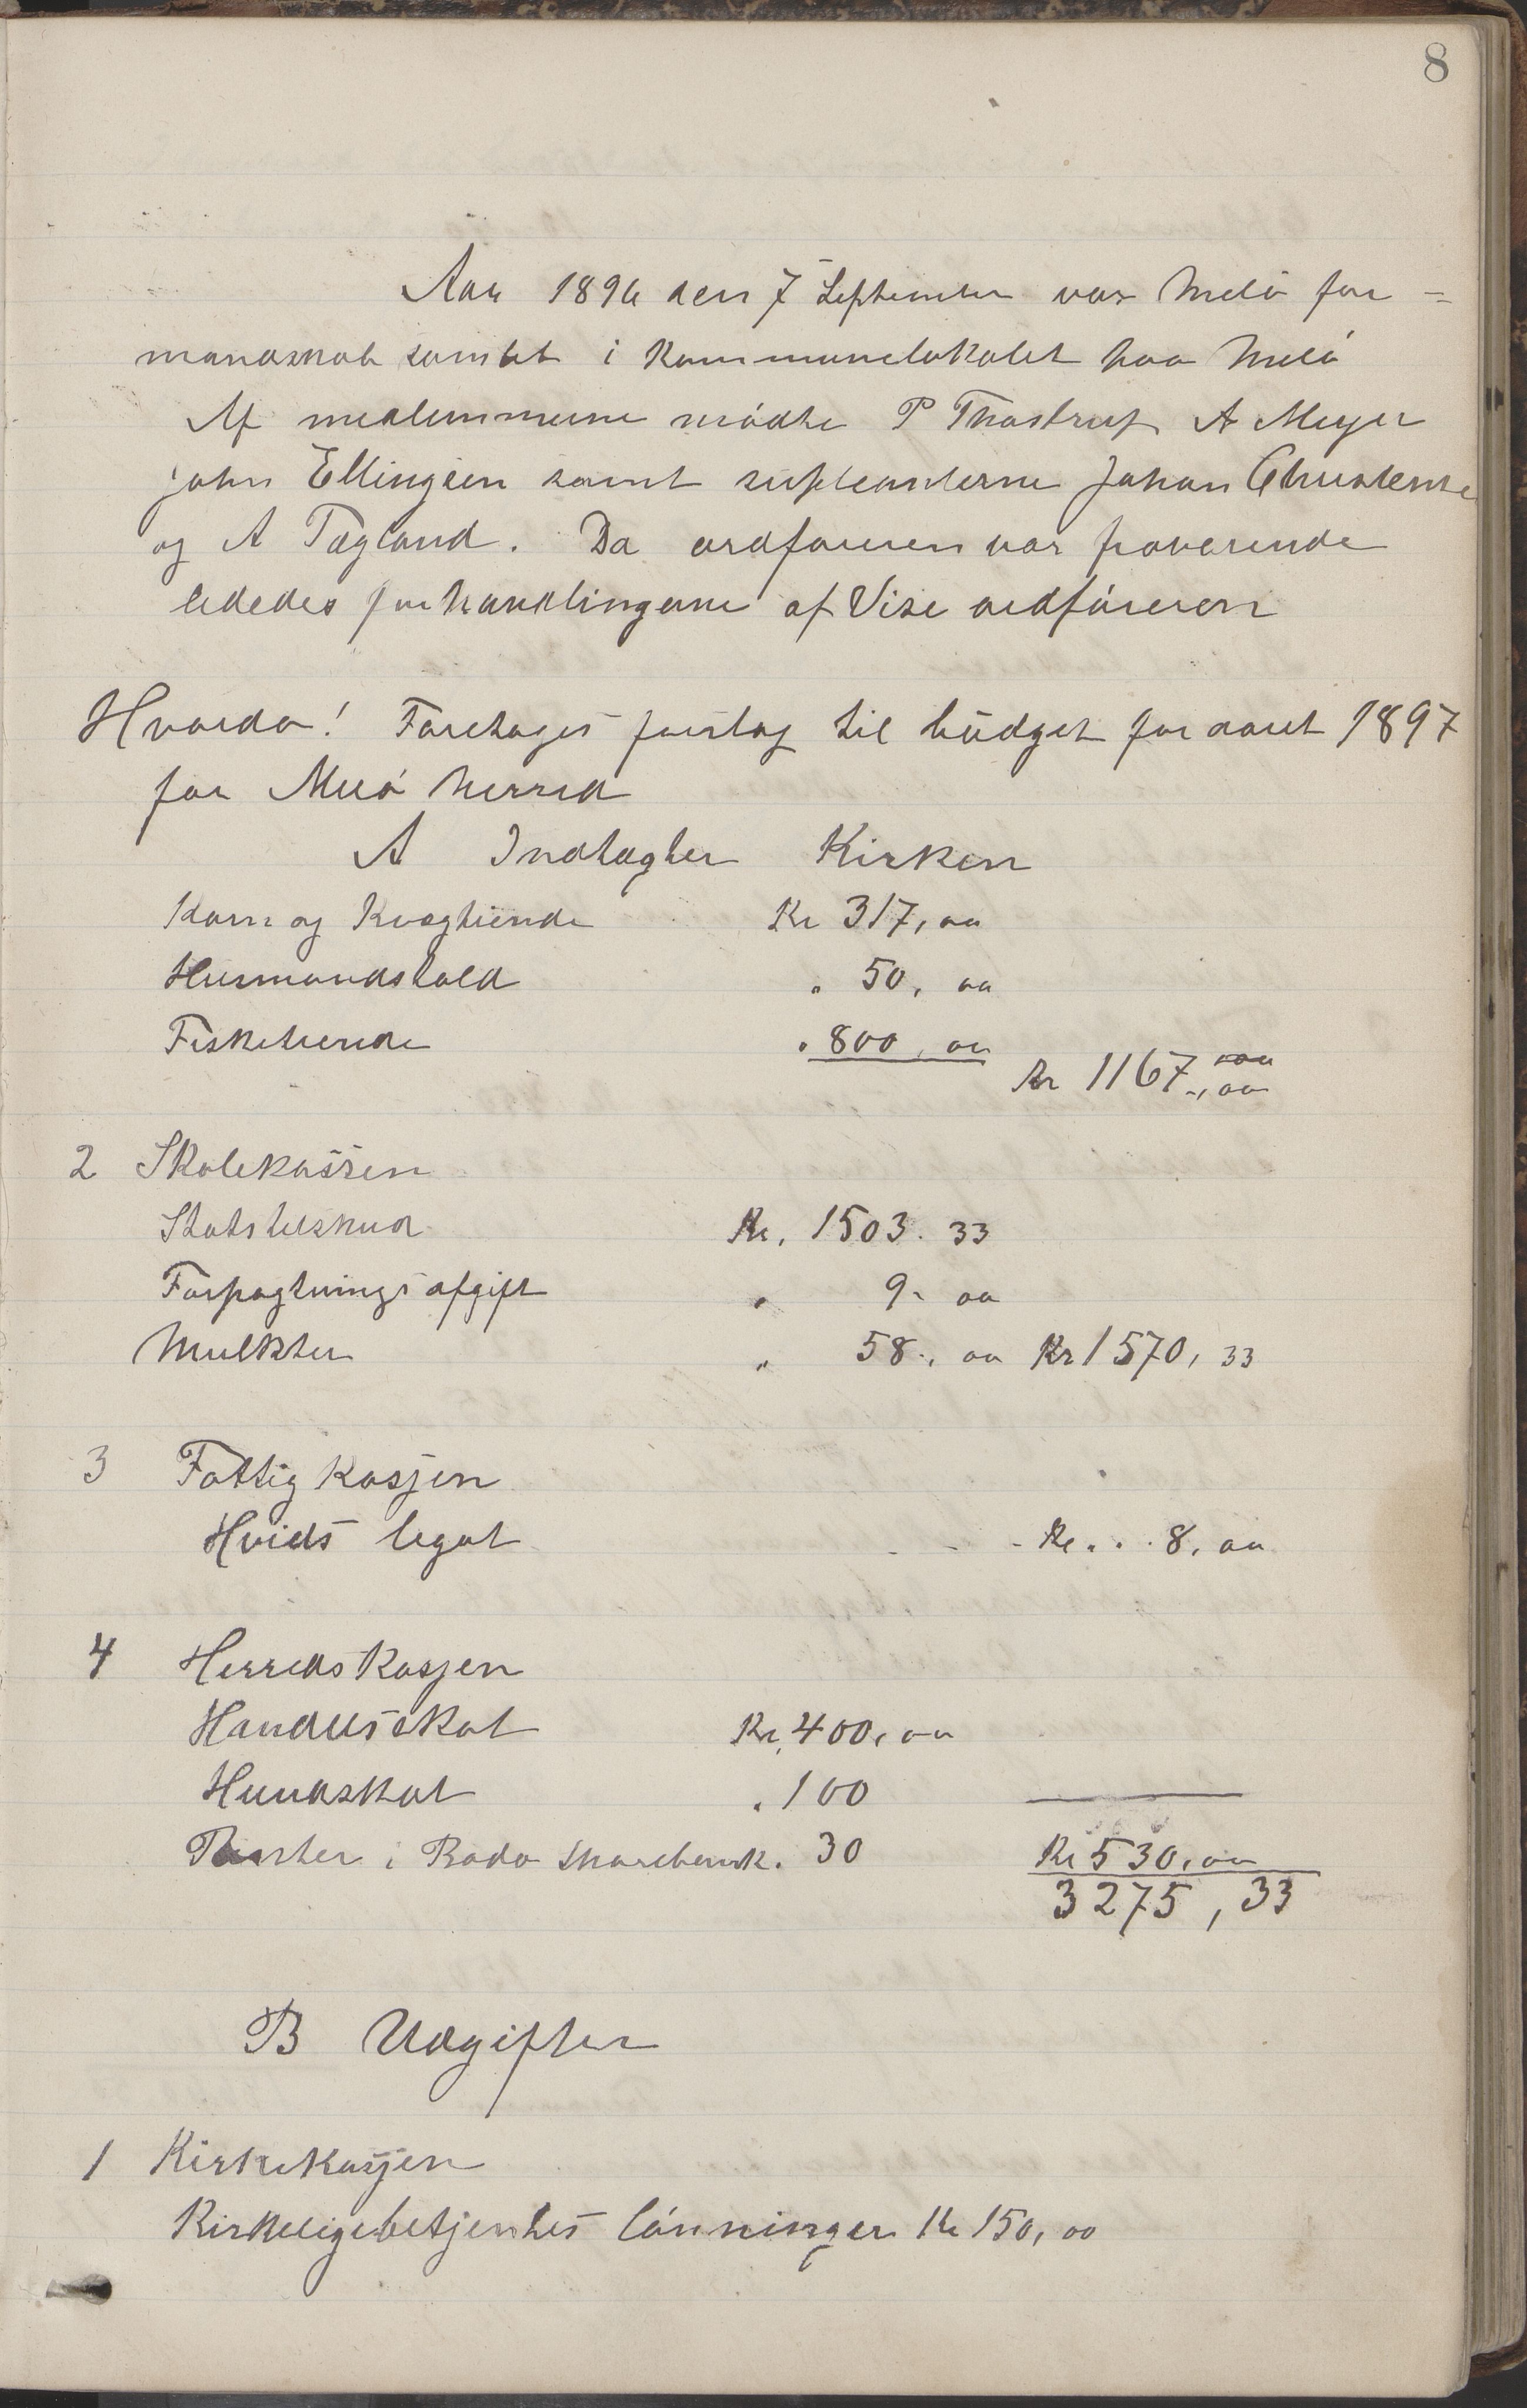 8
Aar 1896 den 7 September var Melö for=
mandskab samlet i Kommunelokalet paa Melö
Af medlemmerne mödte P Thostrup A Meyer
John Ellingsen samt supleanterne Johan Christense
og A Tægland. Da ordföreren var fraværende
lededes forhandlingerne af Vise ordföreren
Hvorda! Foretoges forslag til büdget for aaret 1897
for Melö herred
A Indtægter Kirken
Korn og Kvægtiende Kr 317, oo
Husmandstold " 50, oo
Fisketiende " 800, oo
Kr 1167, oo
2 Skolekassen
Statstilskud Kr. 1503. 33
Forpagtnings afgift " 9- oo
Mulkter " 58., oo Kr 1570, 33
3 Fattig kassen
Hvids legat - - - Kr. . . 8, oo
4 Herreds Kassen
Handels skat Kr. 400, oo
Hundskat " 100
Renter i Bodø Sparebank. 30 Kr 530, oo
3275, 33
B Udgifter
1 Kirkekassen
Kirkeligebetjentes lönninger Kr 150, oo